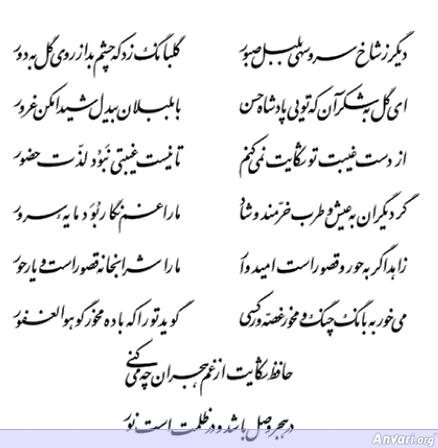 دیگر ز شاخ سرو سهی بلبل صبور گلبانگ زد که چشم بد از روی گل به دور
ای گل به شکر آن که تویی پادشاه حسن با بلبلان بیدل شیدا مکن غرور
از دست غیبت تو شکایت نمی‌کنم تا نیست غیبتی نبُوَد لذّت حضور
گر دیگران به عیش و طرب خرّمند و شاد ما را غم نگار بُوَد مایهٔ سرور
زاهد اگر به حور و قصور است امیدوار ما را شرابخانه قصور است و یار حور
می خور به بانگ چنگ و مخور غصه ور کسی گوید تو را که باده مخور گو هوالغفور
حافظ شکایت از غم هجران چه می‌کنی
در هجر وصل باشد و در ظلمت است نور
AnVari.org